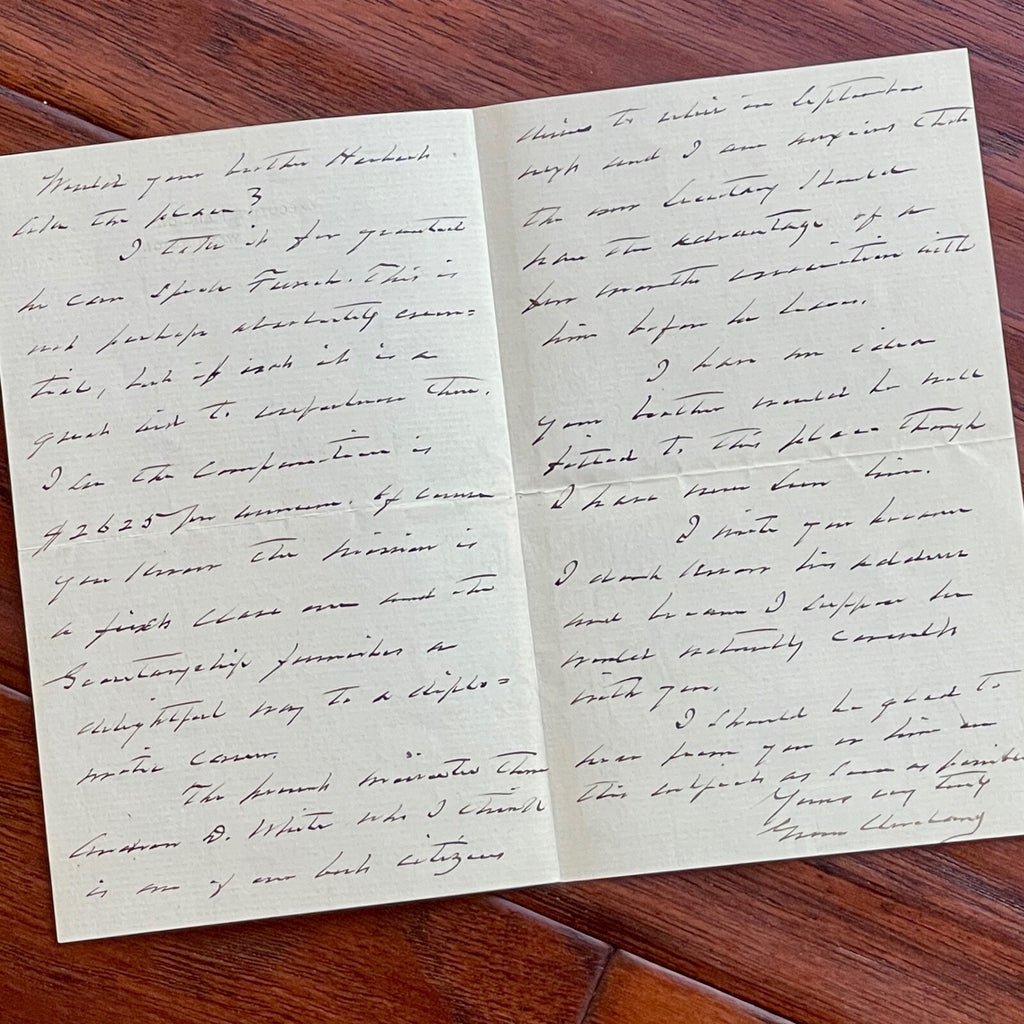 Would your brother Herbert
like the place?
I take it for granted
he can speak French. This is
not perhaps absolutely essen=
tial, but if not it is a
great aid to usefulness there.
I see the compensation is
$2625 per annum. Of course
you know the mission is
a first class one and the
Secretaryship furnishes a
delightful way to a diplo=
matic career.
The present minister there
Andrew D. White who I think
is one of our best citizens
desires to retire in September
next and I am anxious that
the new Secretary should
have the advantage of a
few months association with
him before he leaves.
I have an idea
your brother would be well
fitted to this place though
I have never seen him.
I write you because
I dont know his address
and because I suppose he
would naturally consult
with you.
I should be glad to
hear from you or him on
this subject as soon as possible
Yours very truly
Grover Cleveland